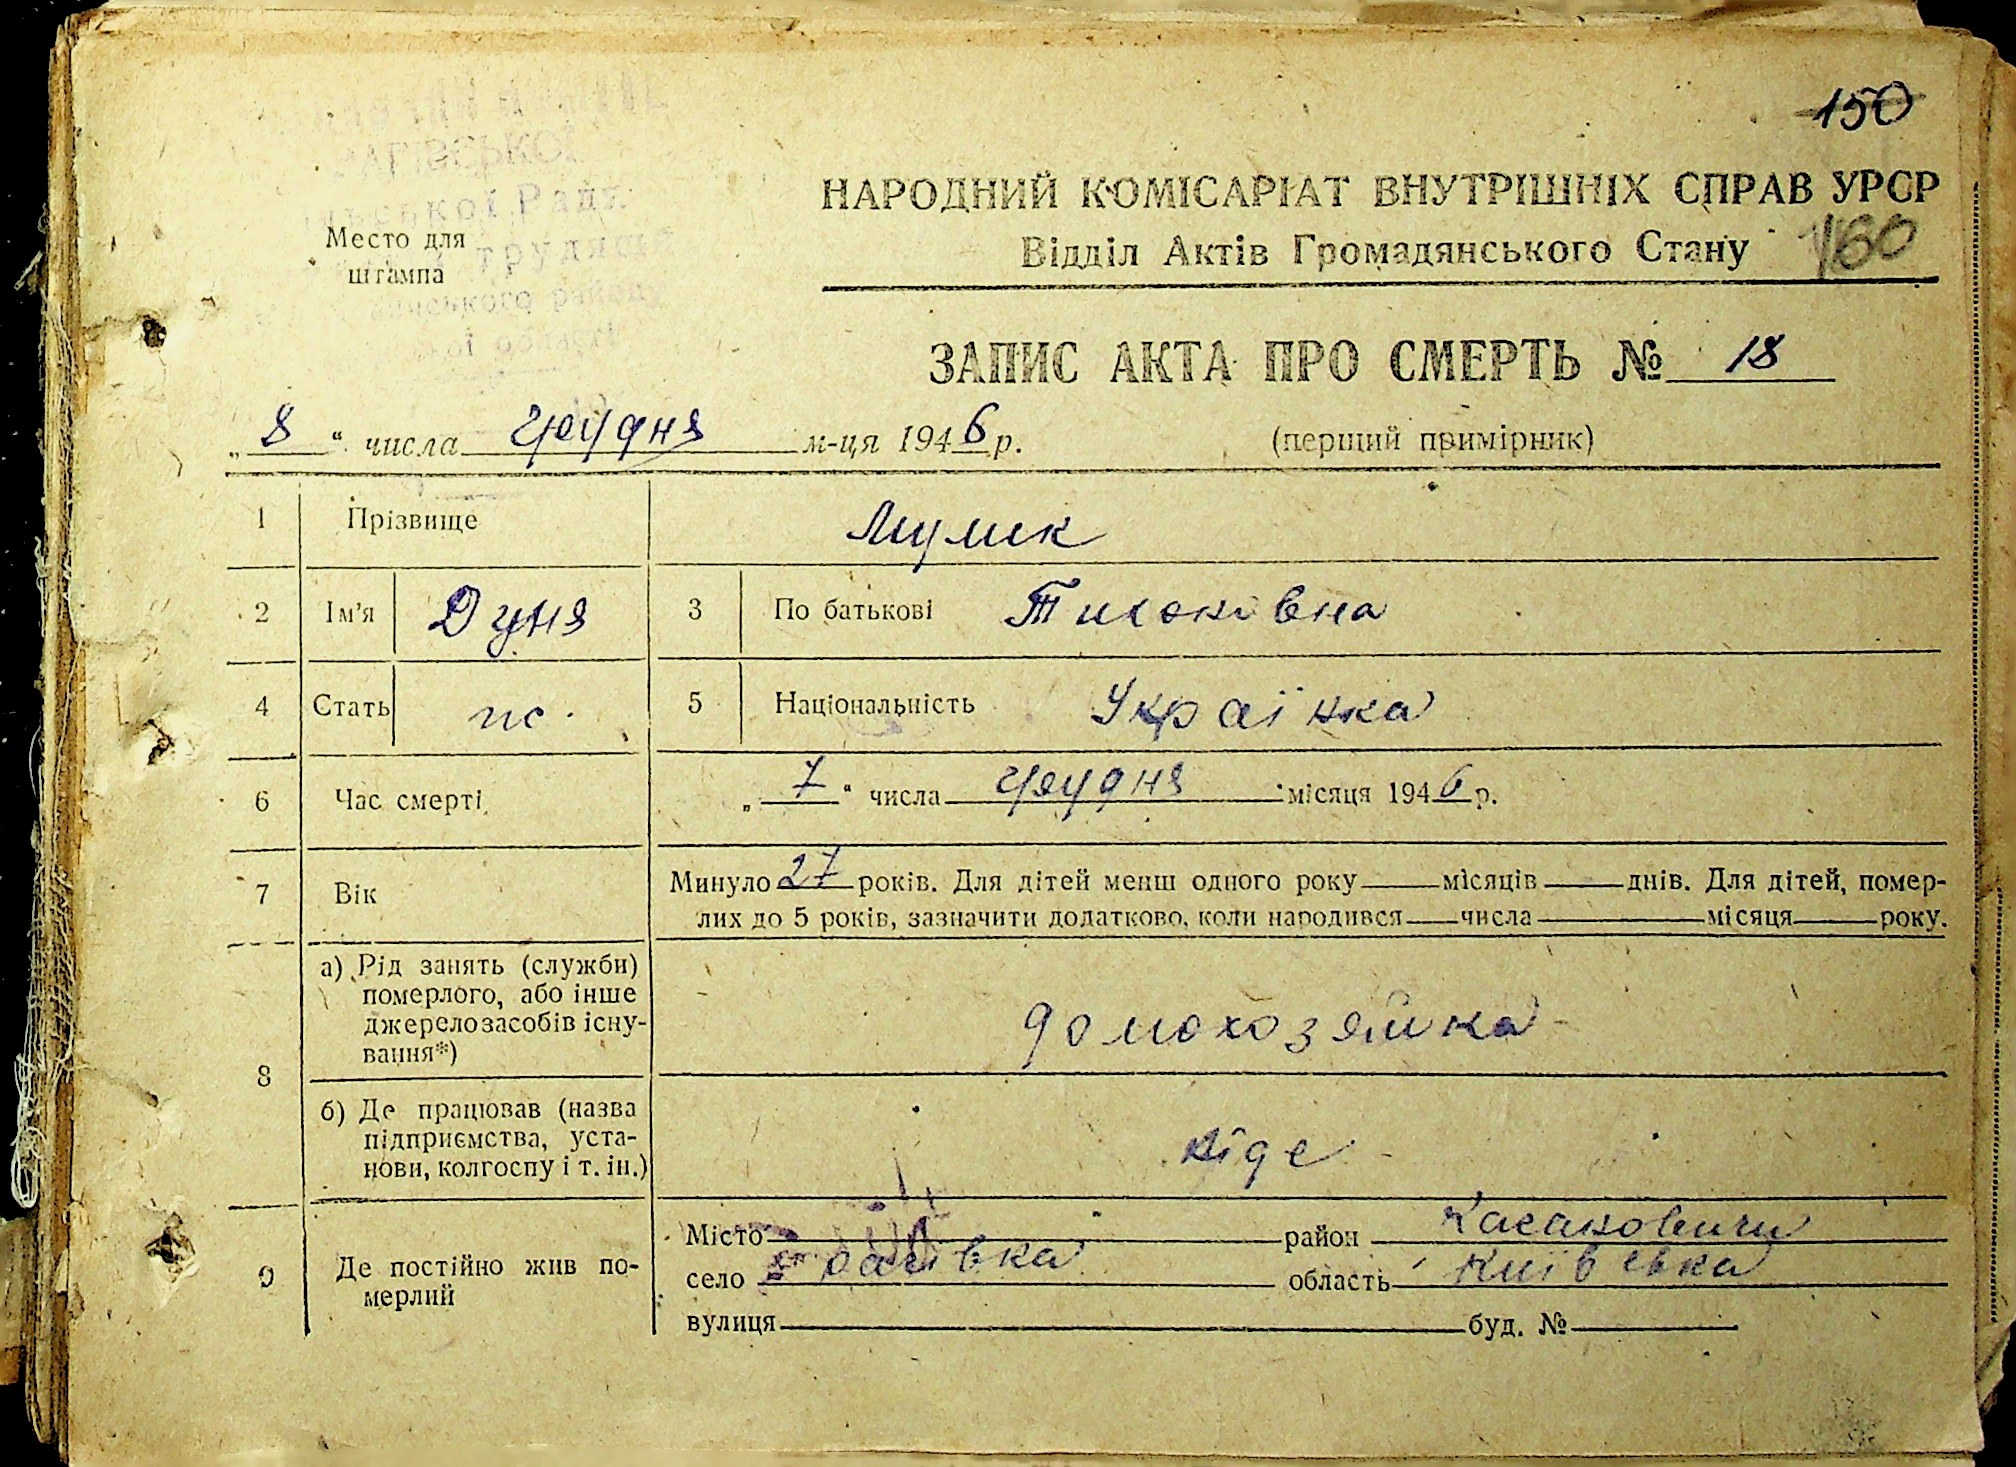 150
НАРОДНИЙ КОМІСАРІАТ ВНУТРІШНІХ СПРАВ УРСР
Відділ Актів Громадянського Стану
160
Место для
штампа
ЗАПИС АКТА ПРО СМЕРТЬ № 18
„ 8 “ числа грудня м-ця 1946 р.
(перший примірник)
1 Прізвище
2 Ім'я Дуня 3 По батькові Тихонівна
4 Стать ж. 5 Національність Українка
6 Час смерті „ 7 “ числа грудня місяця 1946 р.
7 Вік Минуло 27 років. Для дітей менш одного року місяців днів. Для дітей, помер-
лих до 5 років, зазначити додатково, коли народився числа місяця року.
8 а) Рід занять (служби)
померлого, або інше
джерело засобів існу-
вання*)
домохозяйка
б) Де працював (назва
підприємства, уста-
нови, колгоспу і т. ін.)
ніде
9 Де постійно жив по-
мерлий
Місто район
село область Київська
вулиця буд. №